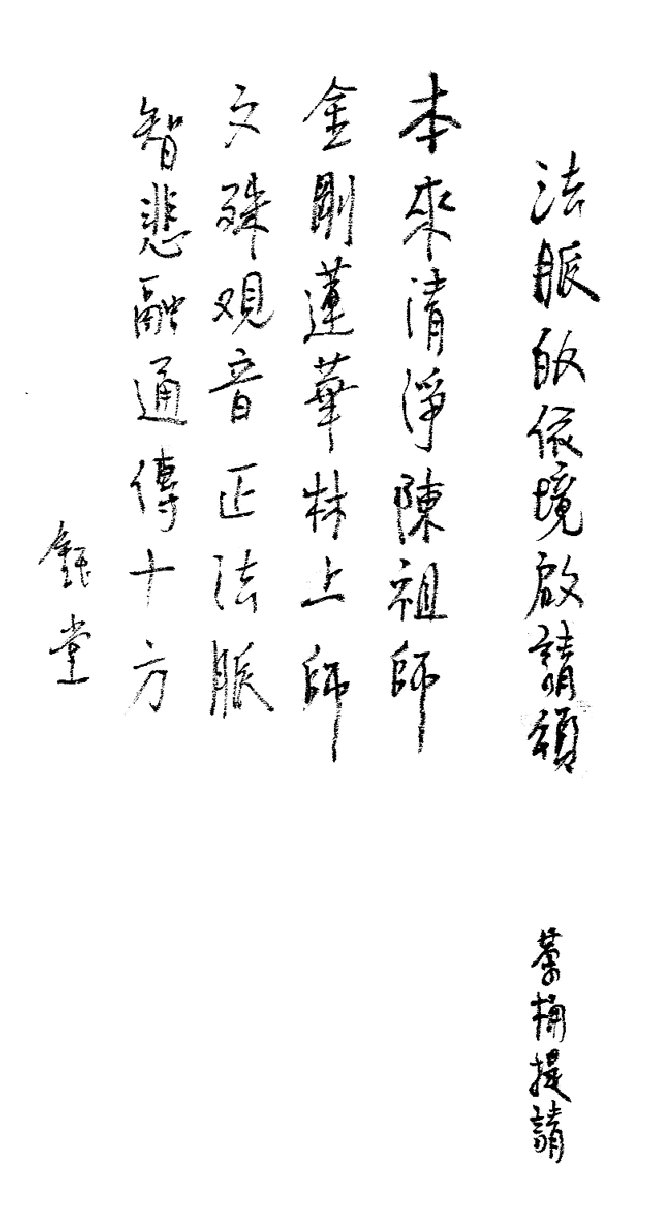 法脈皈依境啟請頌
蓉桶提請
本來清淨陳祖師
金剛蓮華林上師
文殊观音正法脈
智悲融通傳十方
鈺堂